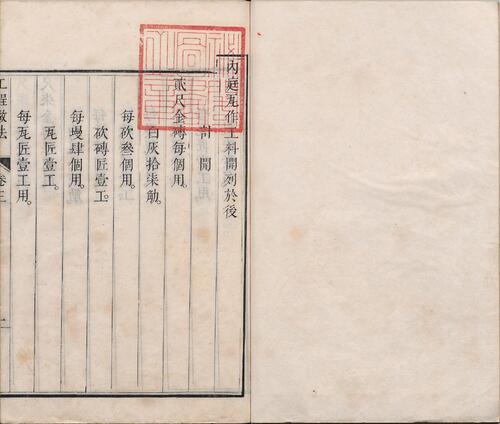 內庭瓦作工料開列於後
計開
貳尺金磚每個用
白灰拾柒觔
每砍叁個用
砍磚匠壹工
每墁肆個用
瓦匠壹工
每瓦匠壹工用
工程做法 卷三 一